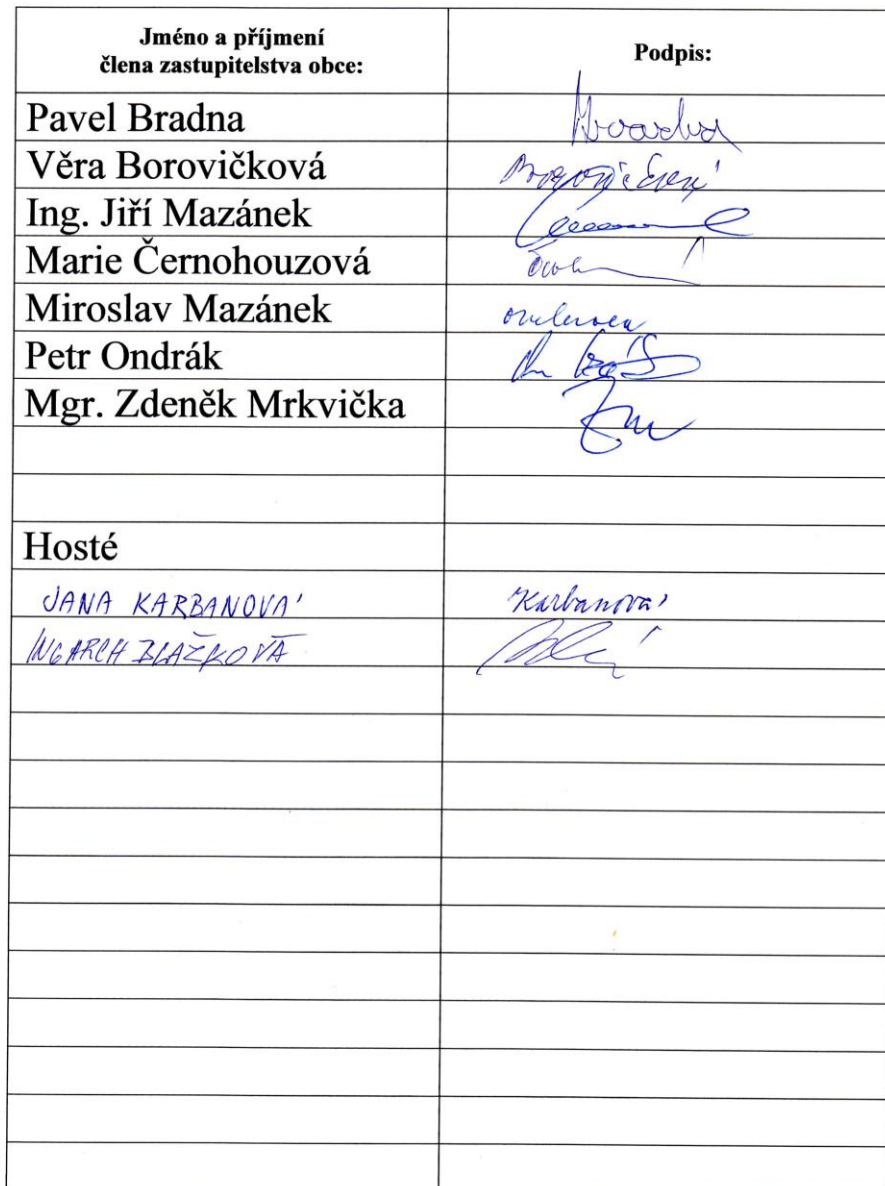 Jméno a příjmení
člena zastupitelstva obce:
Podpis:
Pavel Bradna
Věra Borovičková
Ing. Jiří Mazánek
Marie Černohouzová
Miroslav Mazánek
omluven
Petr Ondrák
Mgr. Zdeněk Mrkvička
Hosté
JANA KARBANOVÁ Karbanová
ING ARCH BLAŽKOVÁ